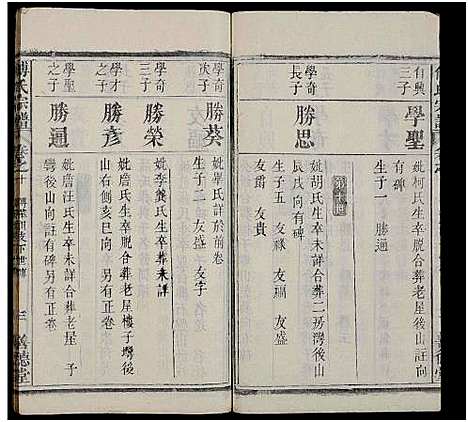 自興
三子
學聖
妣柯氏生卒未詳合葬老屋後山註向
有碑
生子一 勝通
學奇
長子
勝思
妣胡氏生卒未詳合葬二房灣後山
辰戌向有碑
生子五 友祿 友福 友盛
友爵 友貴
學奇
次子
勝葵
妣畢氏詳於前卷
生子二 友盛 友字
學奇
三子
勝榮
妣李龔氏生卒葬未詳
學才
之子
勝彥
妣詹氏生卒脫合葬老屋樓子塆後
山右側亥巳向 另有正卷
學聖
之子
勝通
妣詹汪氏生卒未詳合葬老屋 予
塆後山向註有碑另有正卷
傅氏宗譜
三 義德堂